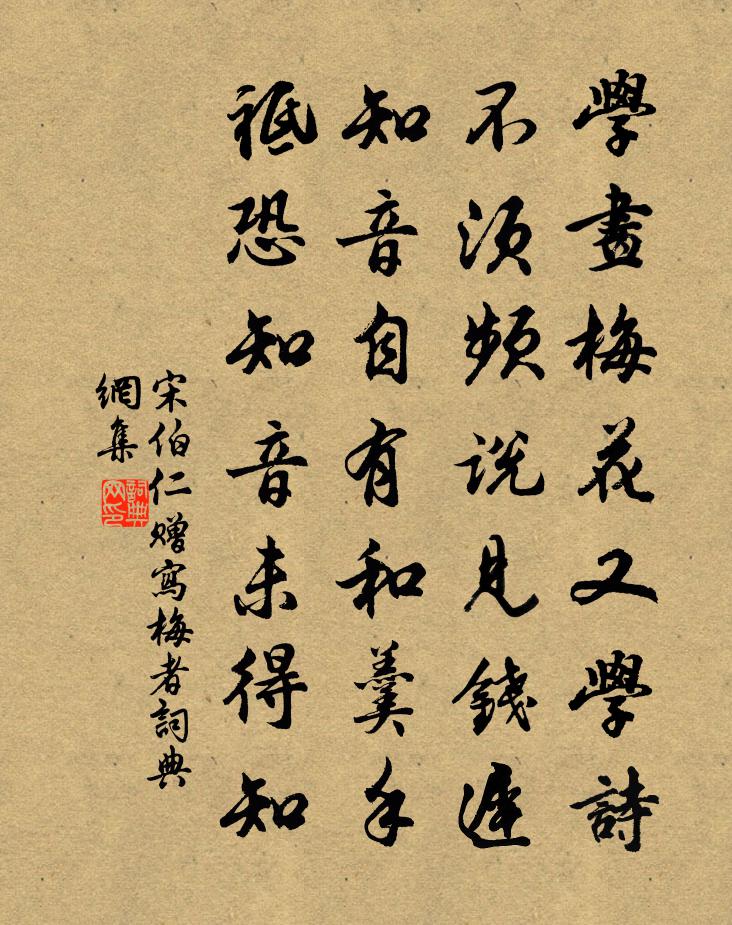 學畫梅花又學詩
不須頻說見錢遲
知音自有和羹手
祗恐知音未得知
宋伯仁贈寫梅者詞典
網集
詞典網印